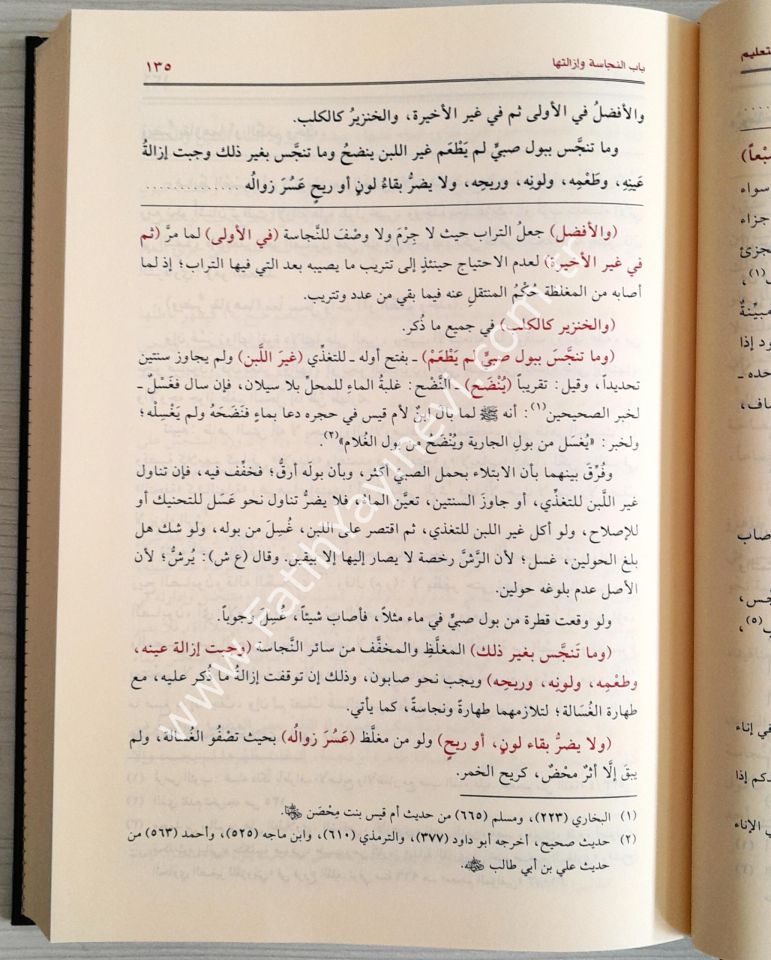 باب النجاسة وإزالتها ١٣٥
والأفضلُ في الأولى ثم في غير الأخيرة، والخنزيرُ كالكلب.
وما تنجَّس ببول صبيٍّ لم يَطْعَم غير اللبن ينضحُ وما تنجَّس بغير ذلك وجبت إزالةُ
عَينِهِ، وطَعْمِه، ولونِه، وريحِه، ولا يضرُّ بقاءُ لونٍ أو ريحٍ عَسُرَ زوالُه ..............
(والأفضل) جعلُ التراب حيث لا جِرْمَ ولا وصْفَ للنَّجاسة (في الأولى) لما مرَّ (ثم
في غير الأخيرة) لعدم الاحتياج حينئذٍ إلى تتريب ما يصيبه بعد التي فيها التراب؛ إذ لما
أصابه من المغلظة حُكْمُ المنتقل عنه فيما بقي من عدد وتتريب.
(والخنزير كالكلب) في جميع ما ذُكر.
(وما تنجَّس ببول صبيٍّ لم يَطْعَمْ) ـ بفتح أوله ـ للتغذِّي (غيرَ اللَّبن) ولم يجاوز سنتين
تحديداً، وقيل: تقريباً (يُنْضَح) ـ النَّضْح: غلبةُ الماءِ للمحلِّ بلا سيلان، فإن سال فغَسْلٌ ـ
لخبر الصحيحين(١): أنه ﷺ لما بال ابنٌ لأم قيس في حجره دعا بماءٍ فنَضَحَهُ ولم يَغْسِلْه؛
ولخبر: «يُغسَل من بولِ الجارية ويُنْضَح من بول الغُلام»(٢).
وفُرِّقَ بينهما بأن الابتلاء بحمل الصبي أكثر، وبأن بولَه أرقُّ؛ فخفِّف فيه، فإن تناول
غير اللَّبن للتغذِّي، أو جاوزَ السنتين، تعيَّن الماءُ، فلا يضرُّ تناول نحو عَسَل للتحنيك أو
للإصلاح، ولو أكل غير اللبن للتغذي، ثم اقتصر على اللبن، غُسِلَ من بوله، ولو شك هل
بلغ الحولين، غسل؛ لأن الرَّشَّ رخصة لا يصار إليها إلا بيقين. وقال (ع ش): يُرشُّ؛ لأن
الأصل عدم بلوغه حولين.
ولو وقعت قطرة من بول صبيٍّ في ماء مثلاً، فأصاب شيئاً، غُسِلَ وجوباً.
(وما تَنجَّس بغير ذلك) المغلظِ والمخفَّف من سائر النَّجاسة (وجبت إزالة عينه،
وطعْمِه، ولونِه، وريحِه) ويجب نحو صابون، وذلك إن توقفت إزالةُ ما ذُكر عليه، مع
طهارة الغُسالة؛ لتلازمهما طهارةً ونجاسةً، كما يأتي.
(ولا يضرُّ بقاء لونٍ، أو ريحٍ) ولو من مغلَّظ (عَسُرَ زوالُه) بحيث تصْفُو الغُسالة، ولم
يبقَ إلَّا أثرٌ محْضٌ، كريح الخمر.
(١) البخاري (٢٢٣)، ومسلم (٦٦٥) من حديث أم قيس بنت مِحْصَن
(٢) حديث صحيح، أخرجه أبو داود (٣٧٧)، والترمذي (٦١٠)، وابن ماجه (٥٢٥)، وأحمد (٥٦٣) من
حديث علي بن أبي طالب
www.FatihYayinevi.com.tr